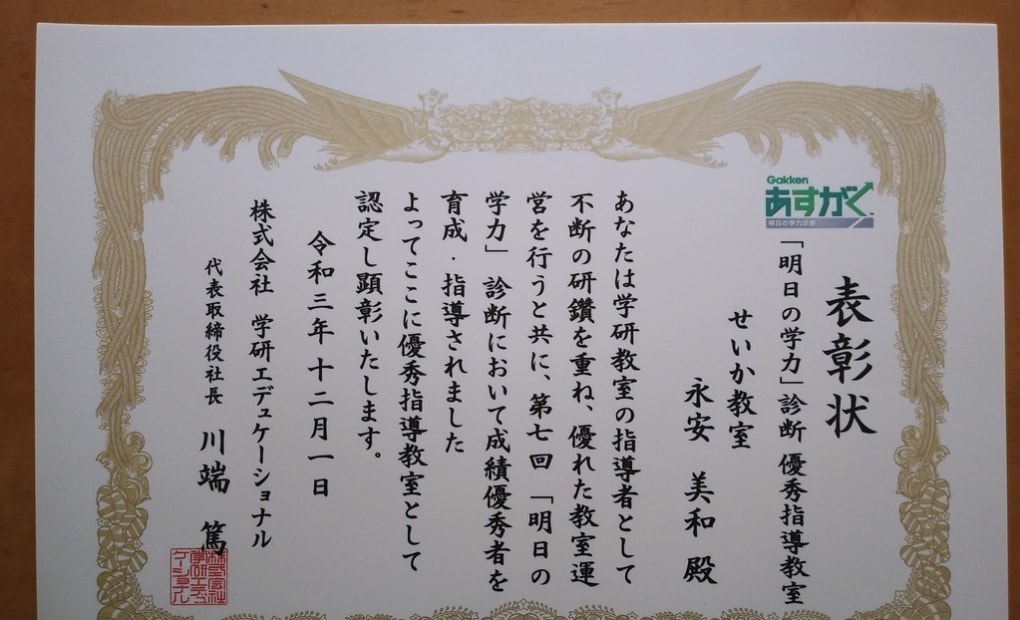 表彰状
Gakken
あすがく
明日の学力診断
「明日の学力」診断 優秀指導教室
せいか教室
永安 美和 殿
あなたは学研教室の指導者として
不断の研鑽を重ね、優れた教室運
営を行うと共に、第七回「明日の
学力」診断において成績優秀者を
育成・指導されました
よってここに優秀指導教室として
認定し顕彰いたします。
令和三年十二月一日
株式会社 学研エデュケーショナル
代表取締役社長 川端 篤
株式会社
学研エデュ
ケーショナル